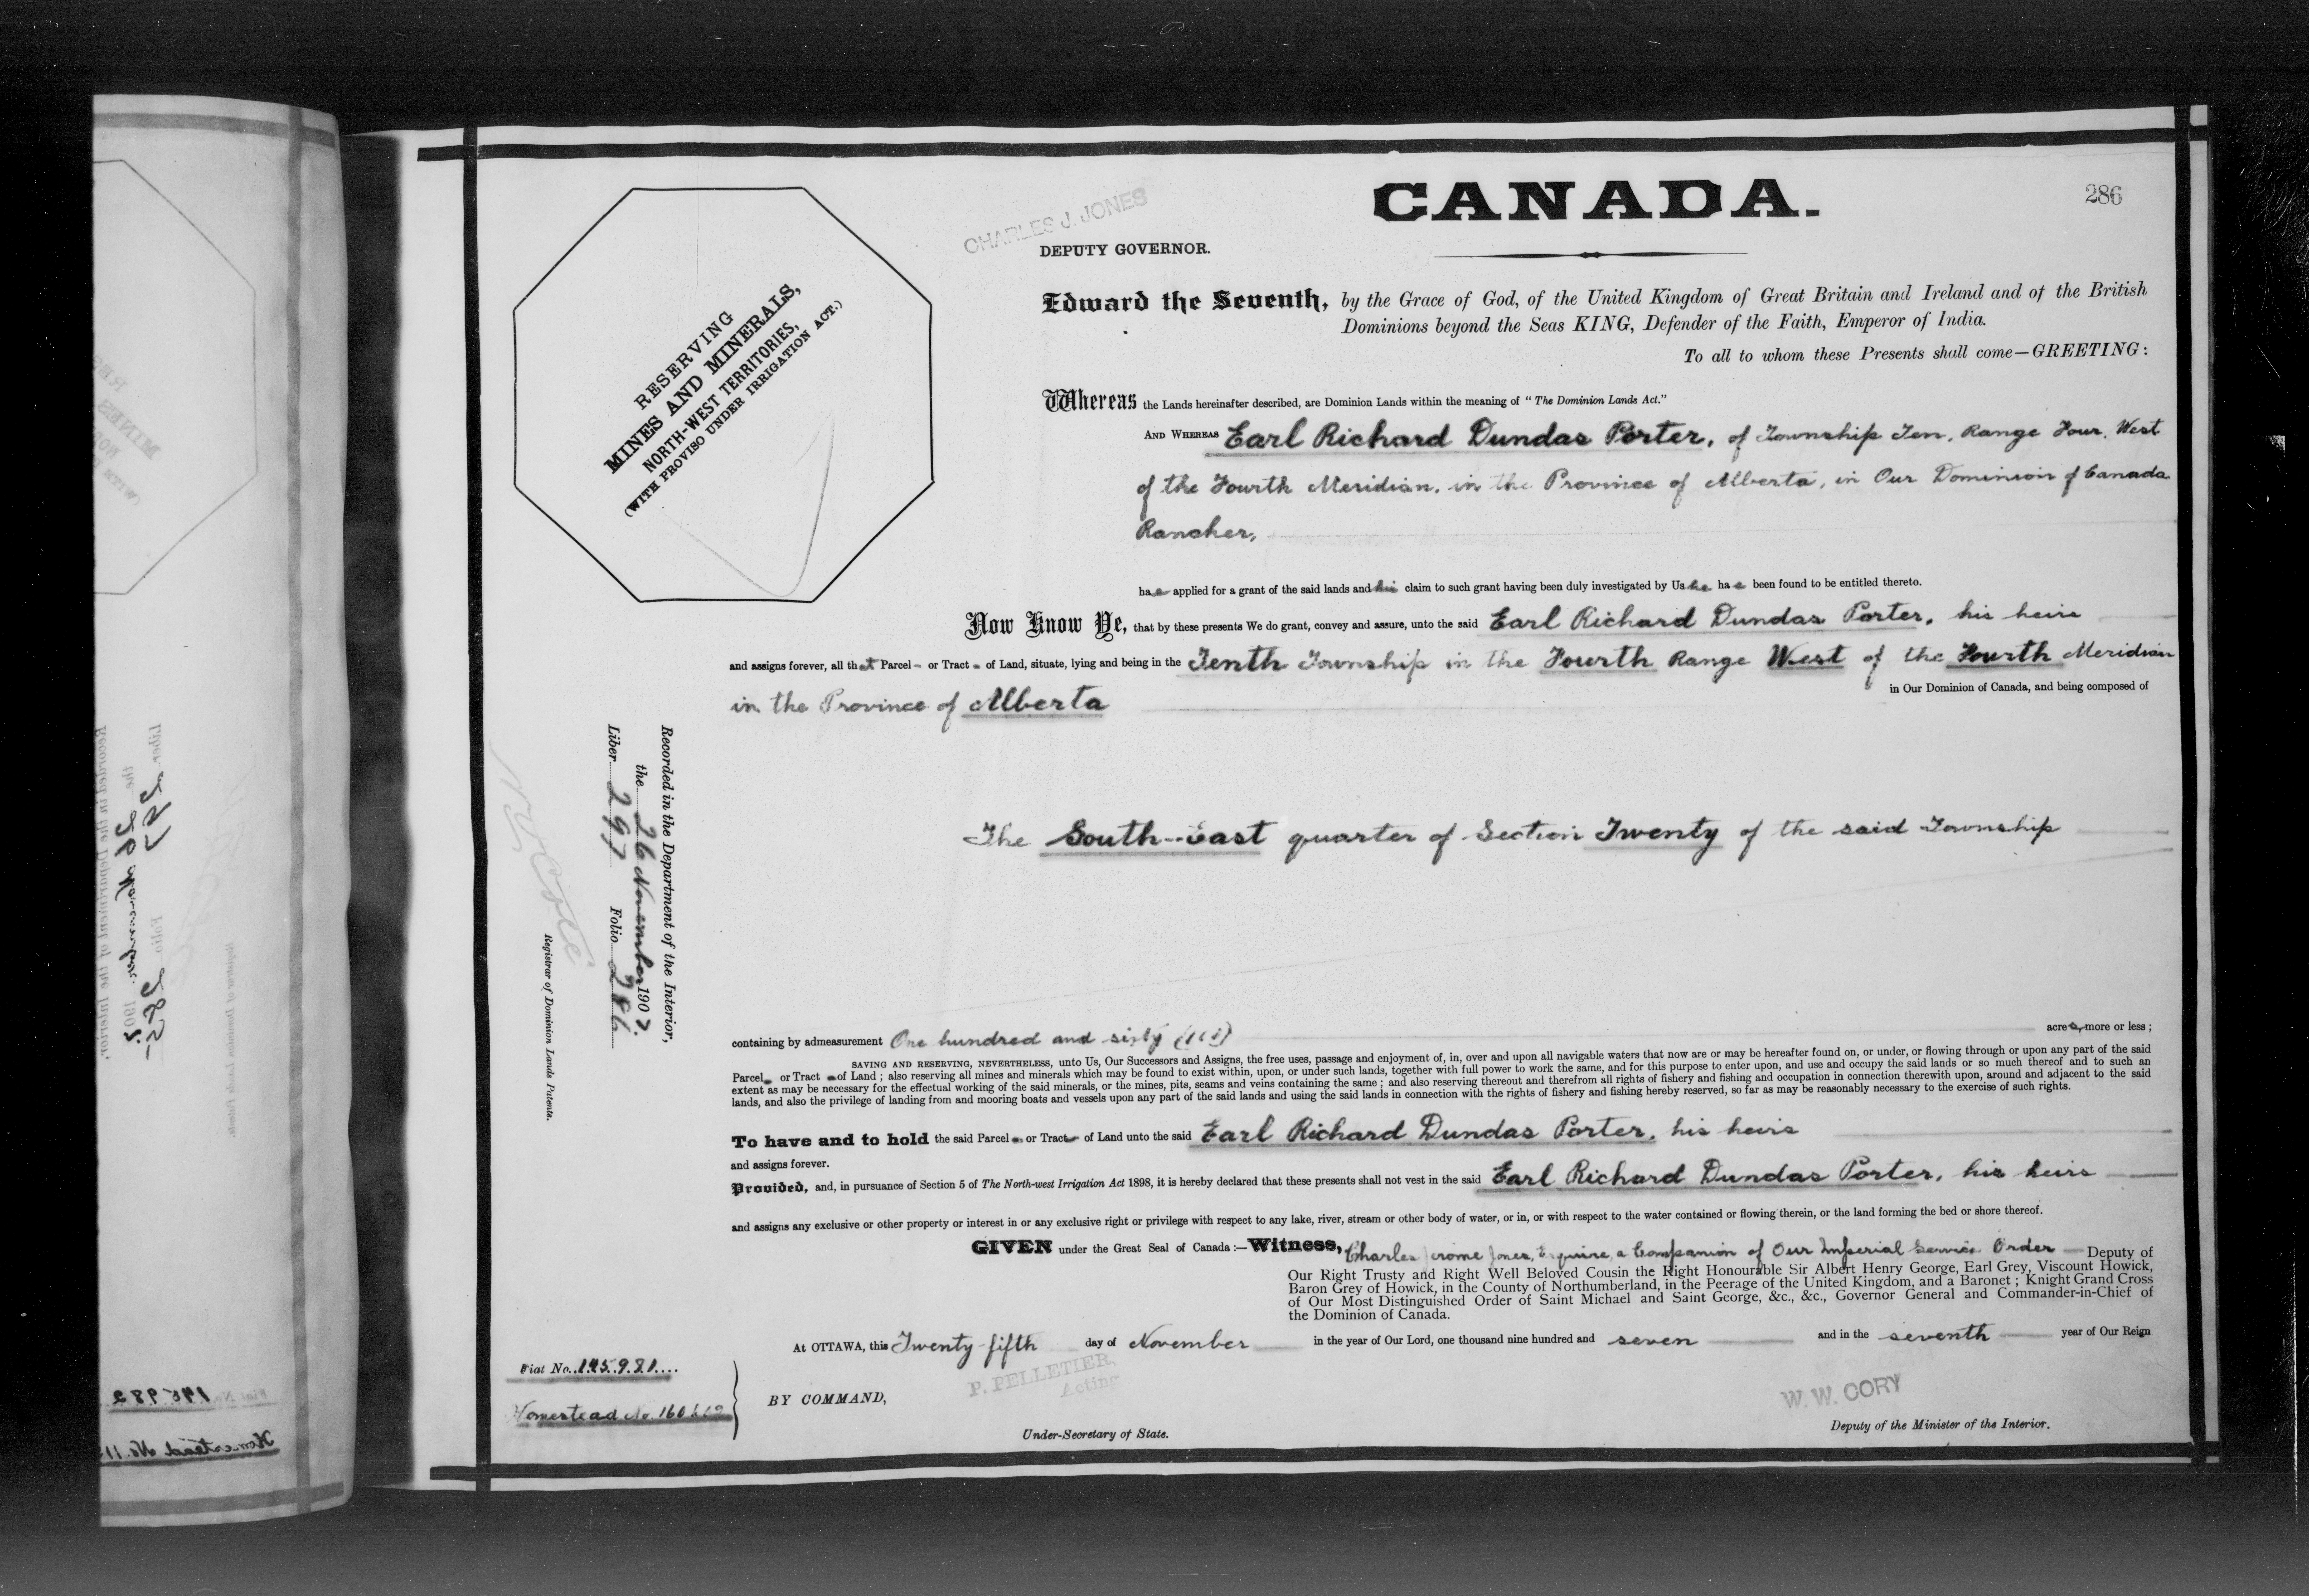 286
CANADA.
CHARLES J. JONES
DEPUTY GOVERNOR.
RESERVING
MINES AND MINERALS,
NORTH-WEST TERRITORIES,
(WITH PROVISO UNDER IRRIGATION ACT.)
Edward the Seventh, by the Grace of God, of the United Kingdom of Great Britain and Ireland and of the British
Dominions beyond the Seas KING, Defender of the Faith, Emperor of India.
To all to whom these Presents shall come—GREETING:
Whereas the Lands hereinafter described, are Dominion Lands within the meaning of "The Dominion Lands Act."
AND WHEREAS Earl Richard Dundas Porter, of Township Ten, Range Four, West
of the Fourth Meridian, in the Province of Alberta, in Our Dominion of Canada
Rancher,
has applied for a grant of the said lands and his claim to such grant having been duly investigated by Us he has been found to be entitled thereto.
Now Know Ye, that by these presents We do grant, convey and assure, unto the said Earl Richard Dundas Porter, his heirs
and assigns forever, all that Parcel or Tract of Land, situate, lying and being in the Tenth Township in the Fourth Range West of the Fourth Meridian
in the Province of Alberta in Our Dominion of Canada, and being composed of
The South-East quarter of Section Twenty of the said Township
Recorded in the Department of the Interior,
the 26 November 1907.
Liber 297 Folio 286
Registrar of Dominion Lands Patents.
containing by admeasurement One hundred and sixty (160) acres, more or less;
SAVING AND RESERVING, NEVERTHELESS, unto Us, Our Successors and Assigns, the free uses, passage and enjoyment of, in, over and upon all navigable waters that now are or may be hereafter found on, or under, or flowing through or upon any part of the said
Parcel or Tract of Land; also reserving all mines and minerals which may be found to exist within, upon, or under such lands, together with full power to work the same, and for this purpose to enter upon, and use and occupy the said lands or so much thereof and to such an
extent as may be necessary for the effectual working of the said minerals, or the mines, pits, seams and veins containing the same; and also reserving thereout and therefrom all rights of fishery and fishing and occupation in connection therewith upon, around and adjacent to the said
lands, and also the privilege of landing from and mooring boats and vessels upon any part of the said lands and using the said lands in connection with the rights of fishery and fishing hereby reserved, so far as may be reasonably necessary to the exercise of such rights.
To have and to hold the said Parcel or Tract of Land unto the said Earl Richard Dundas Porter, his heirs
and assigns forever.
Provided, and, in pursuance of Section 5 of The North-west Irrigation Act 1898, it is hereby declared that these presents shall not vest in the said Earl Richard Dundas Porter, his heirs
and assigns any exclusive or other property or interest in or any exclusive right or privilege with respect to any lake, river, stream or other body of water, or in, or with respect to the water contained or flowing therein, or the land forming the bed or shore thereof.
GIVEN under the Great Seal of Canada:—Witness, Charles Jerome Jones, Esquire, a Companion of Our Imperial Service Order Deputy of
Our Right Trusty and Right Well Beloved Cousin the Right Honourable Sir Albert Henry George, Earl Grey, Viscount Howick,
Baron Grey of Howick, in the County of Northumberland, in the Peerage of the United Kingdom, and a Baronet; Knight Grand Cross
of Our Most Distinguished Order of Saint Michael and Saint George, &c., &c., Governor General and Commander-in-Chief of
the Dominion of Canada.
At OTTAWA, this Twenty-fifth day of November in the year of Our Lord, one thousand nine hundred and seven and in the seventh year of Our Reign
Fiat No. 145981
Homestead No.
BY COMMAND,
P. PELLETIER,
Acting
Under-Secretary of State.
W. W. CORY
Deputy of the Minister of the Interior.